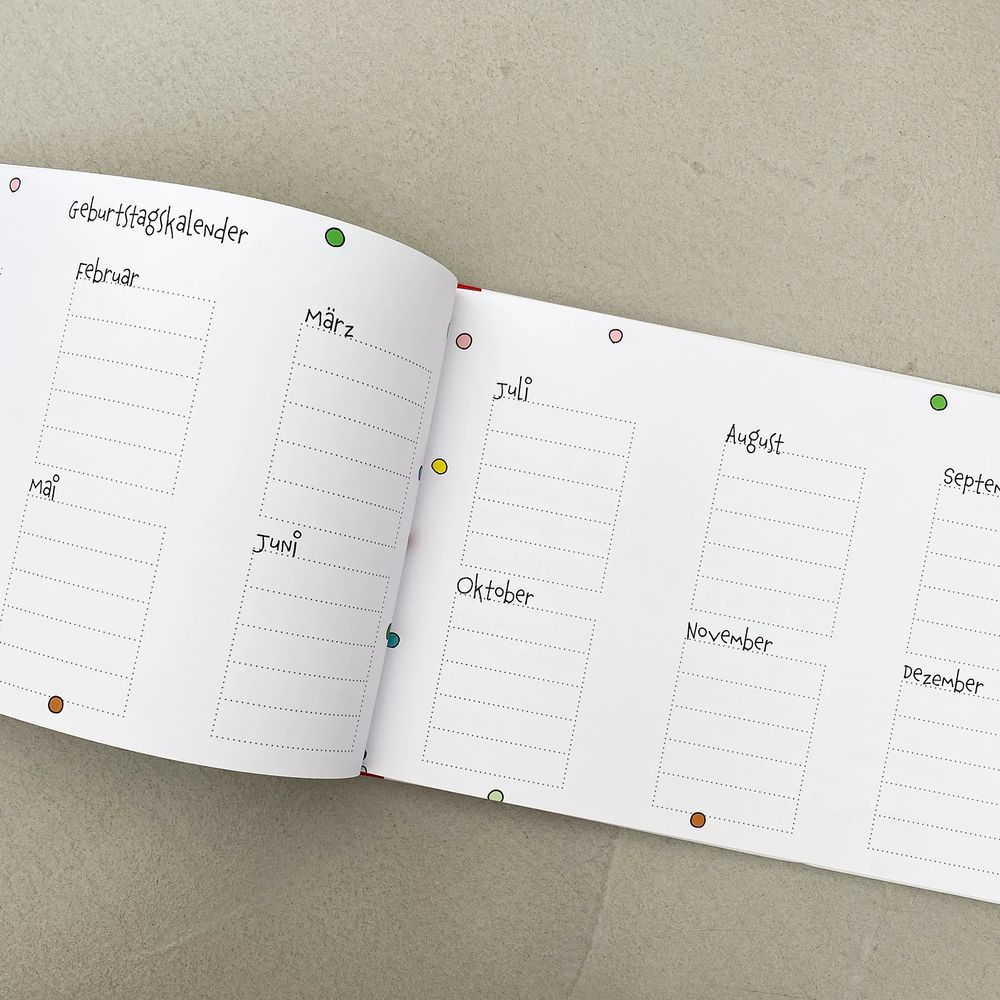 Geburtstagskalender
Februar
März
Mai
Juni
Juli
August
Septem
Oktober
November
Dezember